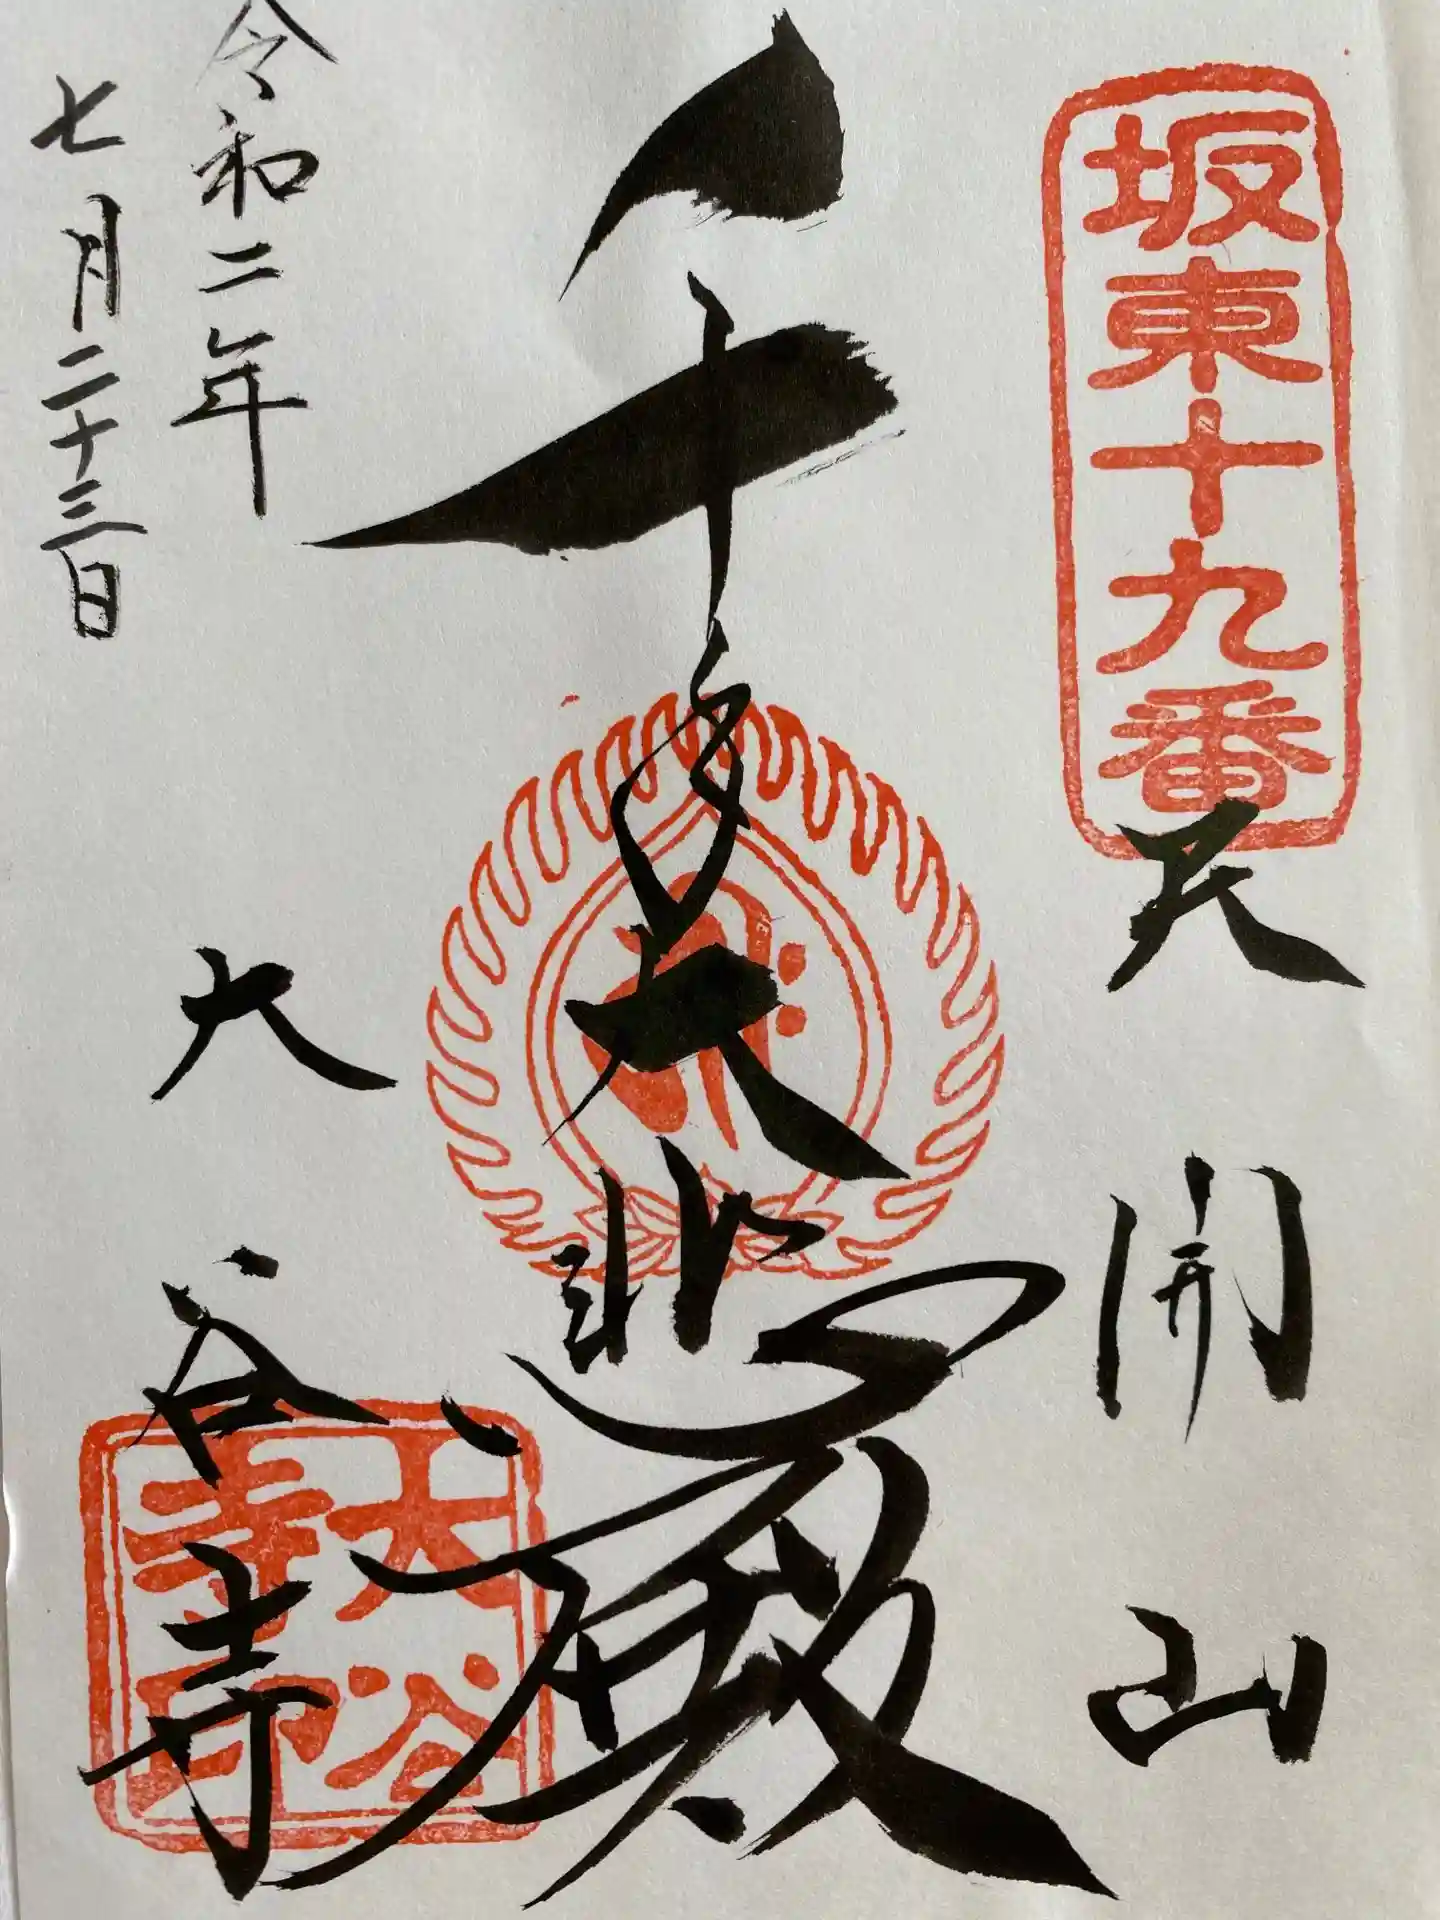 坂東十九番
天開山
千手大悲殿
令和二年
七月二十三日
大谷寺
大谷
寺印